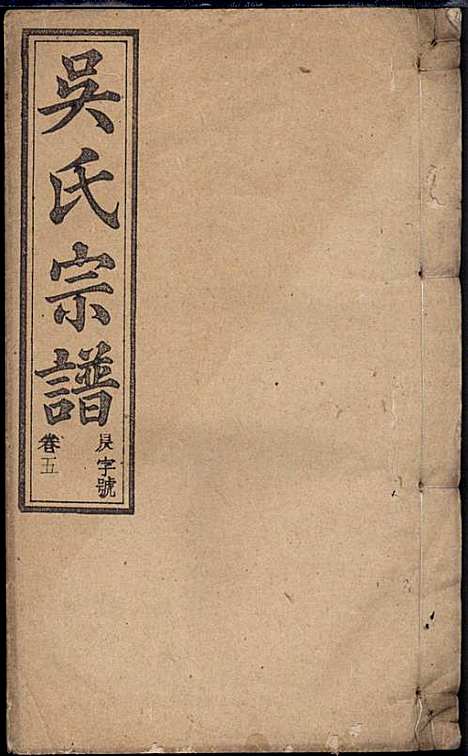 吳氏宗譜
字號
卷五